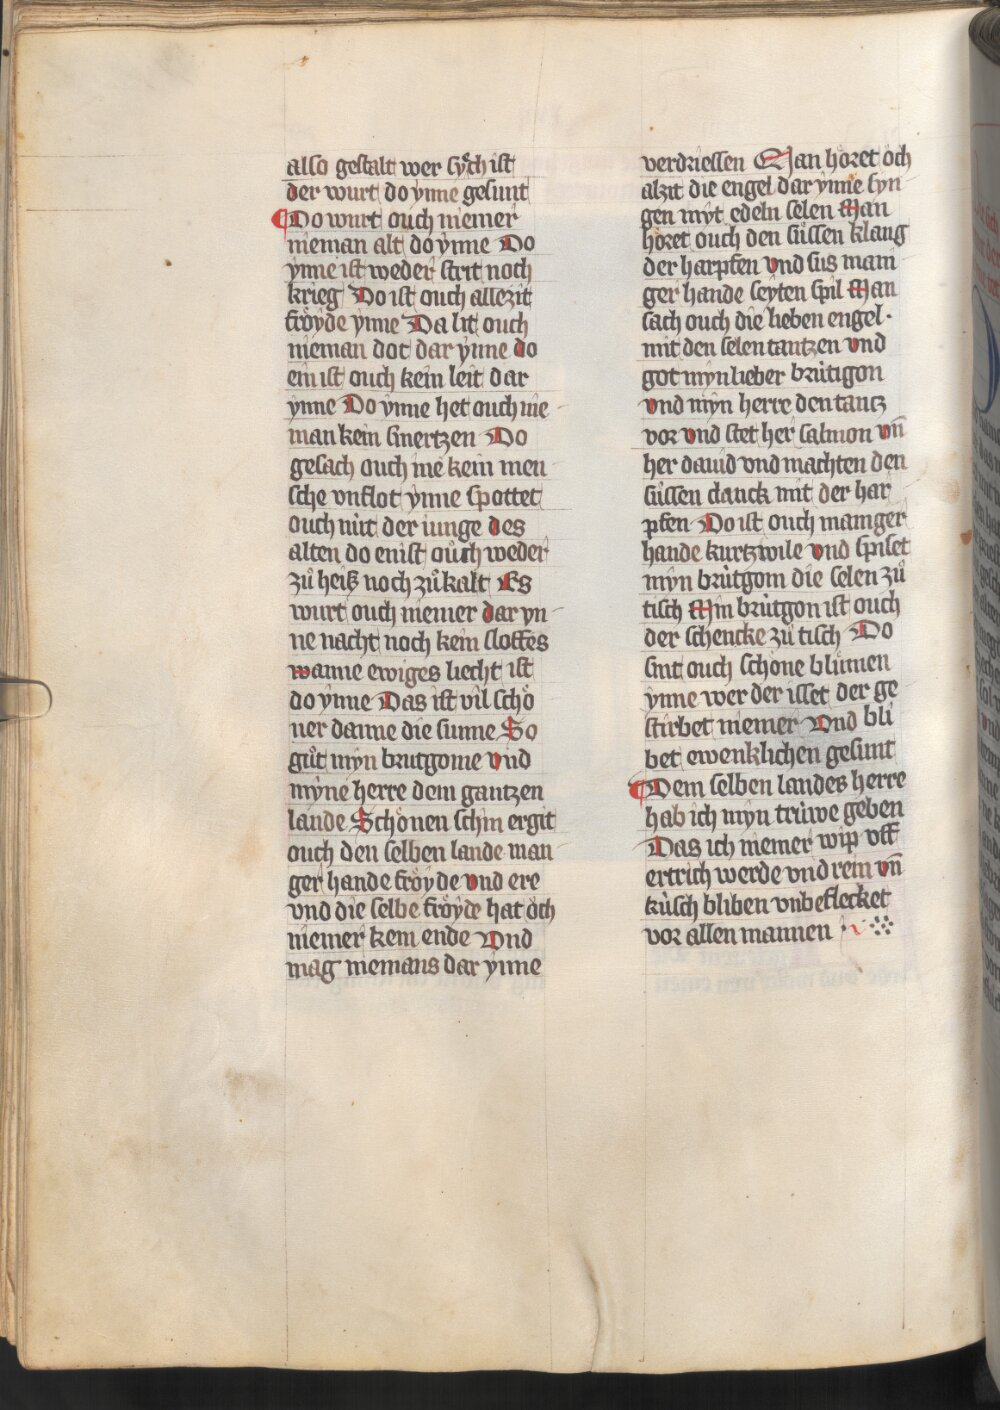 also gestalt wer sẙch ist
der wurt do ynne gesunt
Do wurt ouch niemer
nieman alt do ynne Do
ynne ist weder strit noch
krieg Do ist ouch allezit
froͤyde ynne Da lit ouch
nieman dot dar ynne do
en ist ouch kein leit dar
ynne Do ynne het ouch nie
man kein smertzen Do
gesach ouch nie kein men
sche vnflot ynne spottet
ouch nút der iunge des
alten do enist ouch weder
zuͦ heiß noch zuͦ kalt Es
wurt ouch niemer dar yn
ne nacht noch kein sloffes
wanne ewiges liecht ist
do ynne Das ist vil schoͤ
ner danne die sunne So
guͦt myn brutgome vnd
myne herre dem gantzen
lande Schoͤnen schin er git
ouch den selben lande man
ger hande froͤyde vnd ere
vnd die selbe froͤyde hat och
niemer kein ende Vnd
mag niemans dar ynne
verdriessen Man hoͤret och
alzit die engel dar ynne syn
gen myt edeln selen Man
hoͤret ouch den suͤssen klang
der harpfen vnd sus mani
ger hande seyten spil Man
sach ouch die lieben engel·
mit den selen tantzen vnd
got myn lieber brútigon
vnd myn herre den tantz
vor vnd stet her salmon vn̄
her dauid vnd machten den
suͤssen danck mit der har
pfen Do ist ouch maniger
hande kurtzwile vnd spiset
myn brútgom die selen zuͦ
tisch Min brútgon ist ouch
der schencke zuͦ tisch Do
sint ouch schoͤne bluͤmen
ynne wer der isset der ge
stirbet niemer Vnd bli
bet ewenklichen gesunt
Dem selben landes herre
hab ich myn trúwe geben
Das ich niemer wip vff
ertrich werde vnd rein vn̄
kúsch bliben vnbeflecket
vor allen mannen